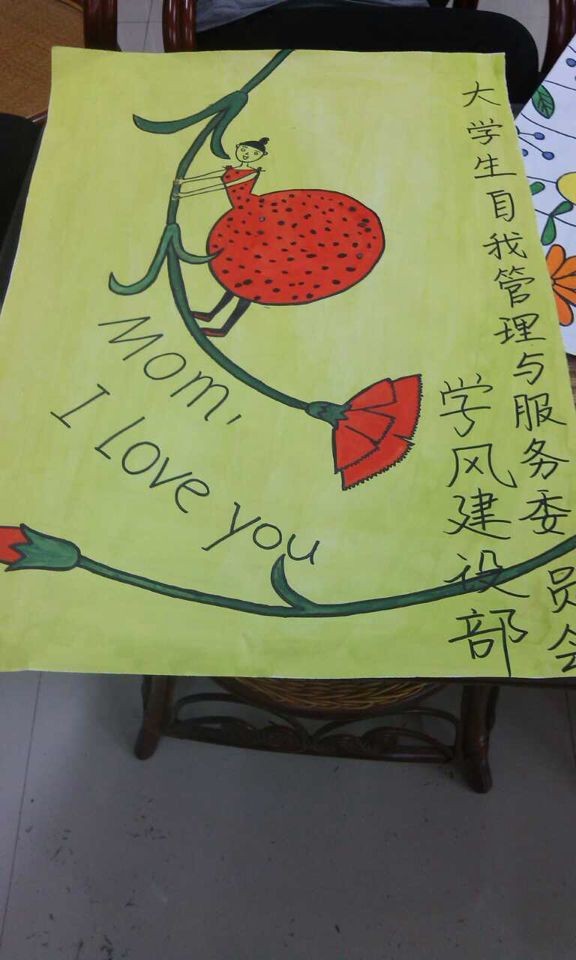 Mom,
I love you
大学生自我管理与服务委员会
学风建设部